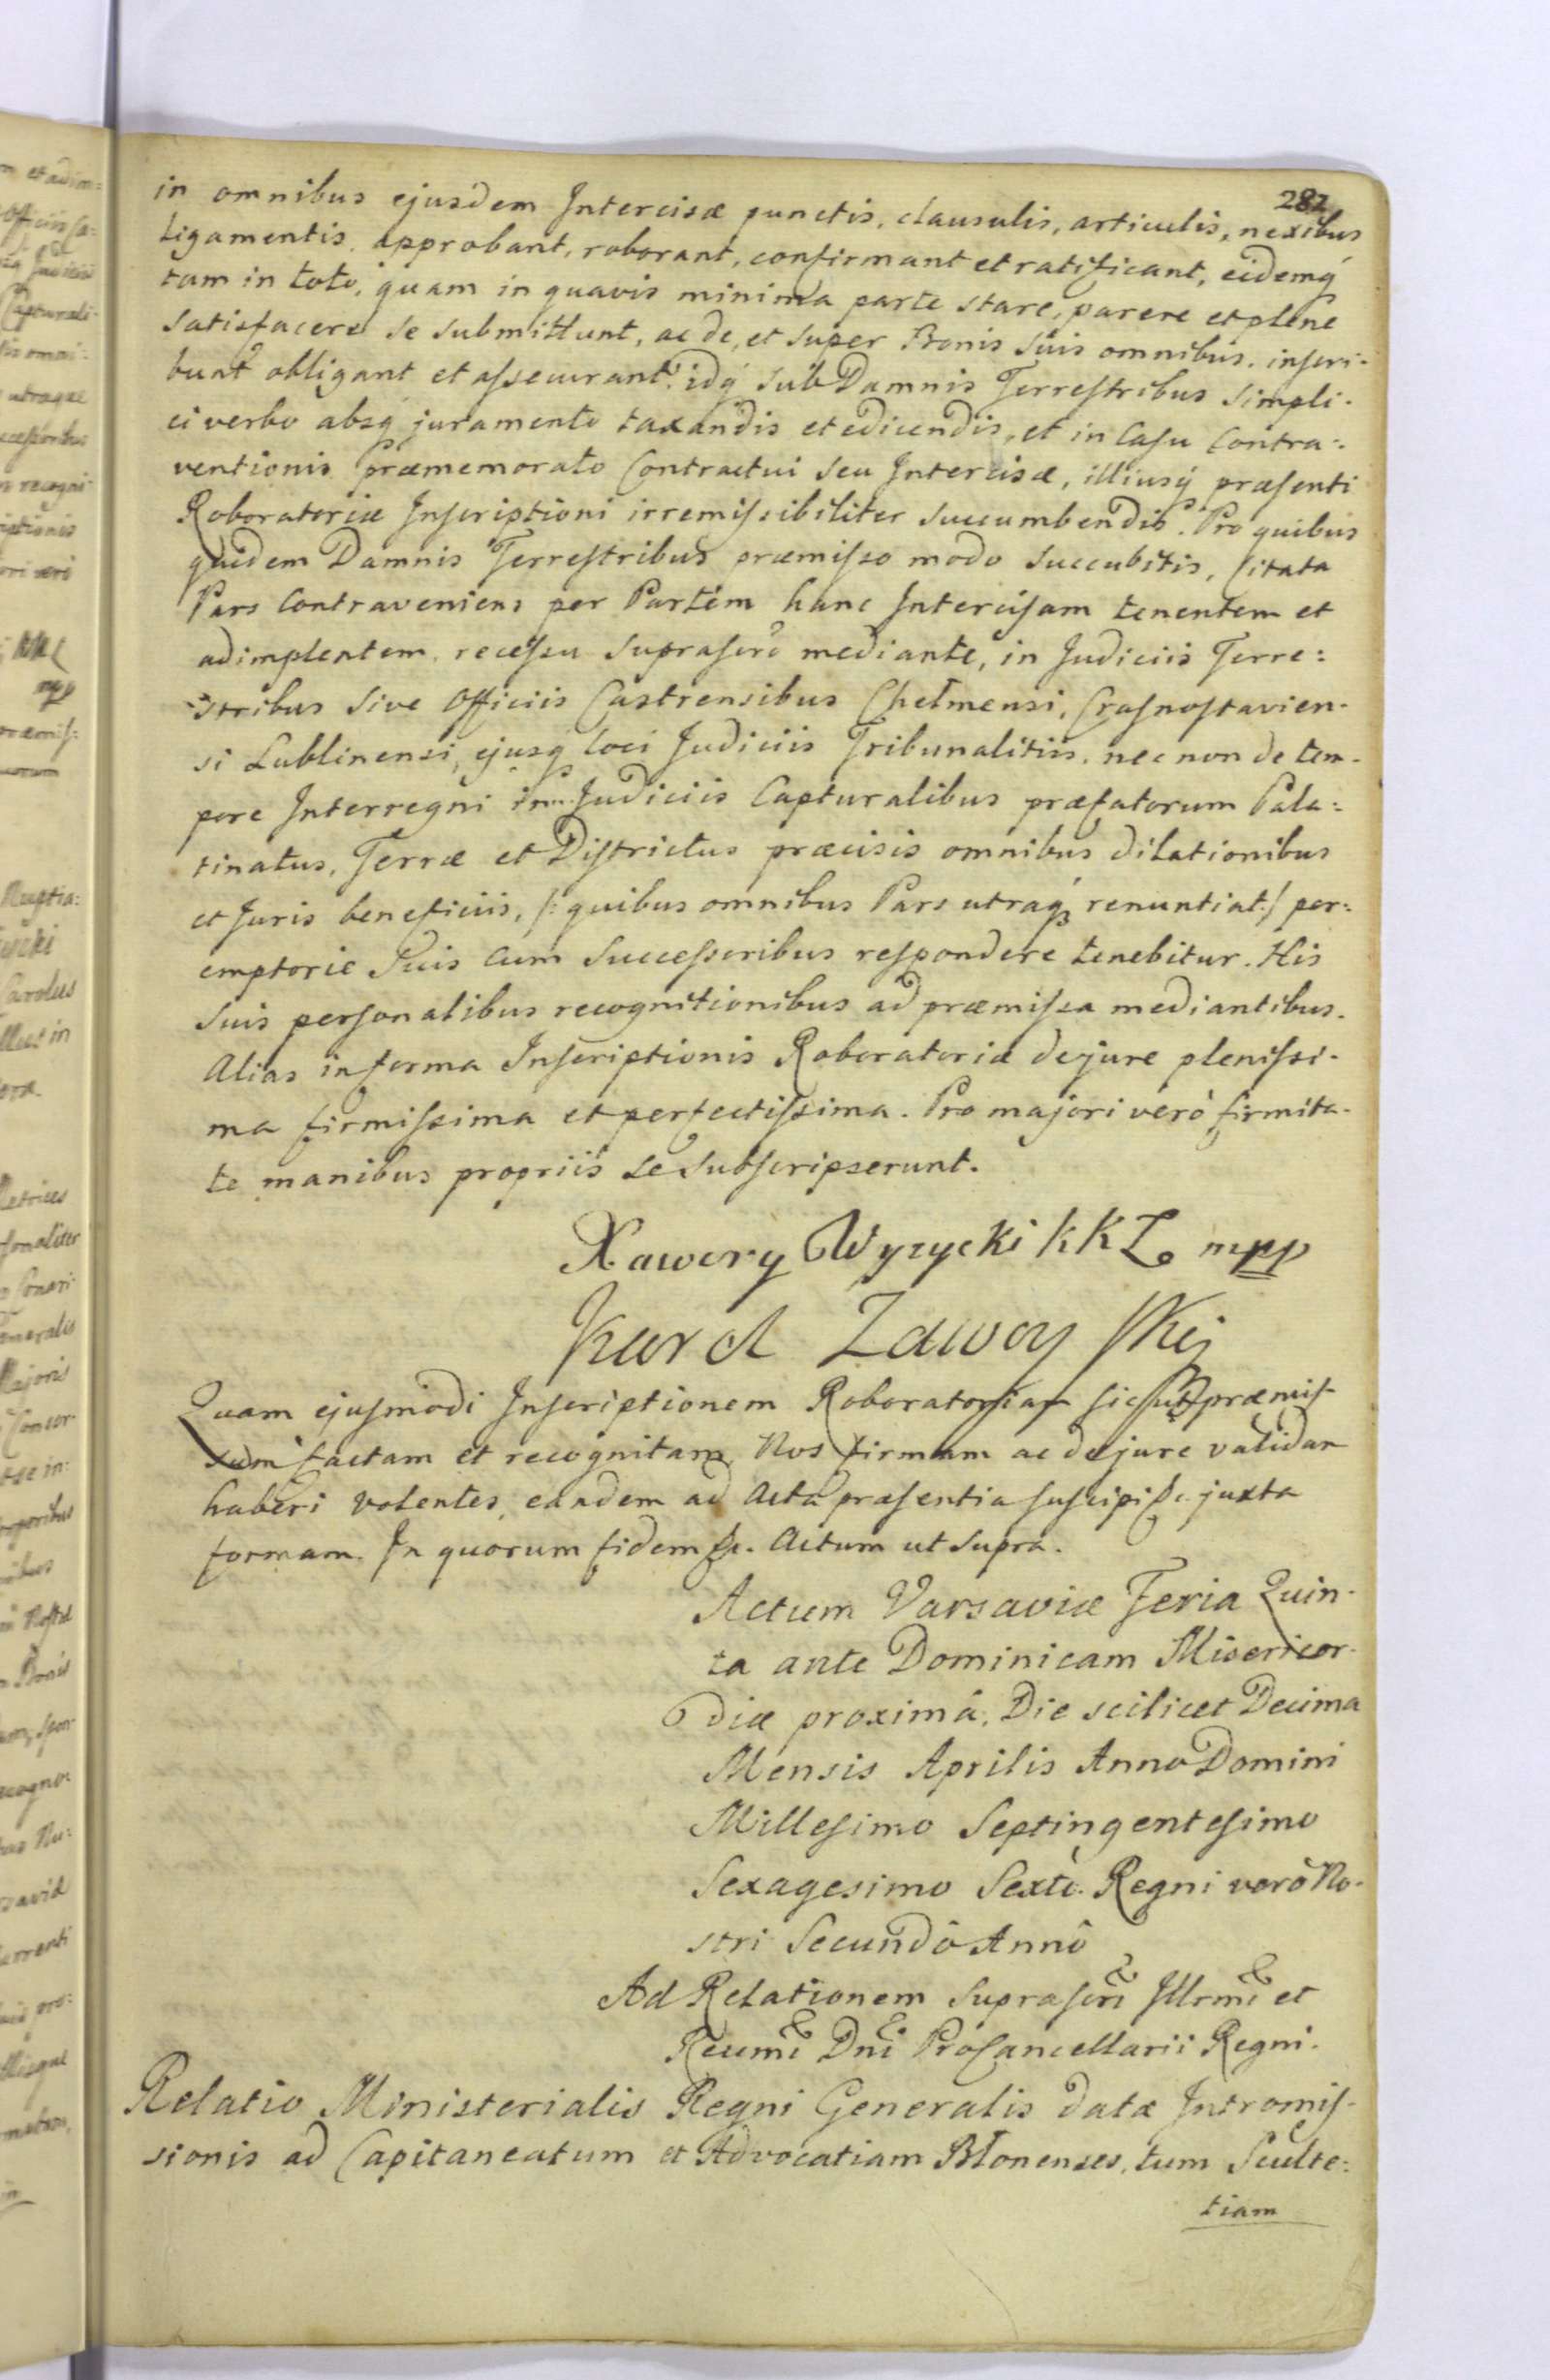 282
in omnibus ejusdem Intercisæ punctis, clausulis, articulis, nexibus
ligamentis approbant, roborant, confirmant et ratificant, eidemq́
tam in toto, quam in quavis minima parte stare, parere et plene
satisfacere se submittunt, ac de, et super Bonis suis omnibus inscri-
bunt obligant et assecurant: idq́ sub Damnis Terrestribus simpli-
ci verbo absq́ juramento taxandis et edicendis, et in Casu Contra:
ventionis præmemorato Contractui seu Intercisæ, illiusq́ præsenti
Roboratoriæ Inscriptioni irremissibiliter succumbendis. Pro quibus
quidem Damnis Terrestribus præmisso modo succubitis, Citata
Pars Contraveniens per Partem hanc Intercisam tenentem et
adimplentem, recessu suprascrõ mediante, in Judiciis Terre:
stribus sive Officiis Castrensibus Chełmensi, Crasnostavien-
si Lublinensi, ejusq́ loci Judiciis Tribunalitiis, nec non de tem-
pore Interregni in Judiciis Capturalibus præfatorum Pala:
tinatus, Terræ et Districtus præcisis omnibus dilationibus
et Juris beneficiis, /: quibus omnibus Pars utraq́ renuntiat :/ per:
emptorie Suis cum Successoribus respondere tenebitur. His
suis personalibus recognitionibus ad præmissa mediantibus.
Alias in forma Inscriptionis Roboratoriæ de jure plenissi-
ma firmissima et perfectissima. Pro majori verò firmita-
te manibus propriis se subscripserunt.
Xawery Wyzycki KKL mpp
Karol Zawoyski
Quam ejusmodi Inscriptionem Roboratoriam sic ut præmis-
sum factam et recognitam, Nos firmam ac de jure validam
haberi volentes, eandem ad Acta præsentia suscipi &c. juxta
formam. In quorum fidem &c. Actum ut supra.
Actum Varsaviæ Feria Quin-
ta ante Dominicam Misericor-
diæ proximâ, Die scilicet Decima
Mensis Aprilis Anno Domini
Millesimo Septingentesimo
Sexagesimo Sexto. Regni verò No-
stri Secundô Annô
Ad Relationem suprascrĩ Illrmĩ et
Reũmi Dnĩ ProCancellarii Regni.
Relatio Ministerialis Regni Generalis datæ Intromis-
sionis ad Capitaneatum et Advocatiam Błonenses, tum Sculte:
tiam